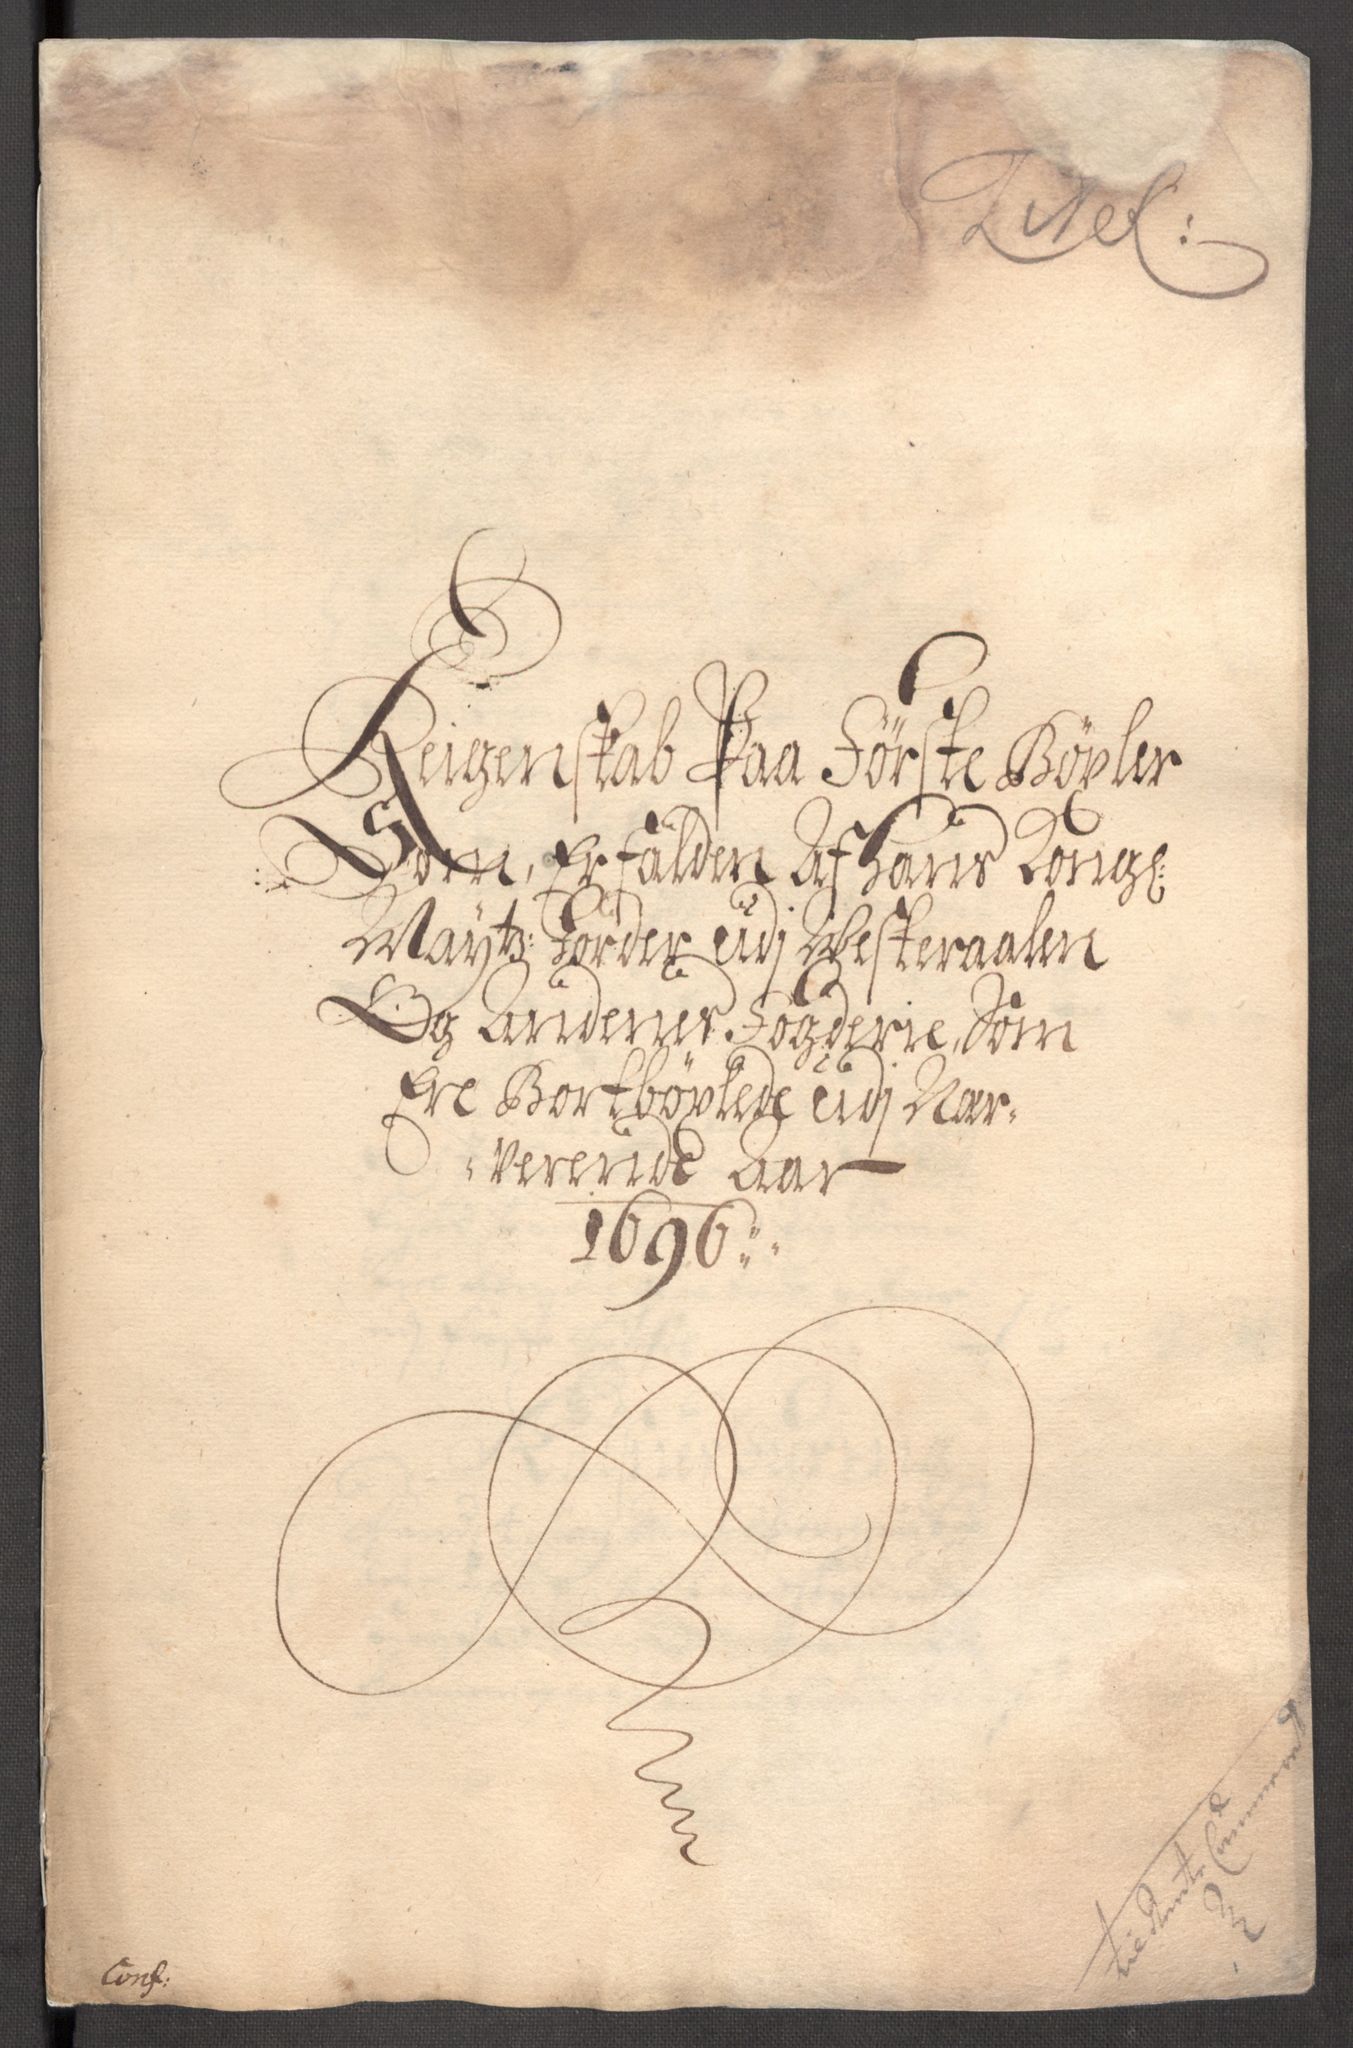 Titel:
Reigenskab Paa Förste Böxler
Som, Er fälden Af Hans Kongl:
Mayts: Jorder udj Westeraalen
Og Andenes Fogderie, Som
Ere Bortböxlede udj Nær-
-verende Aar
1696:
Conf: